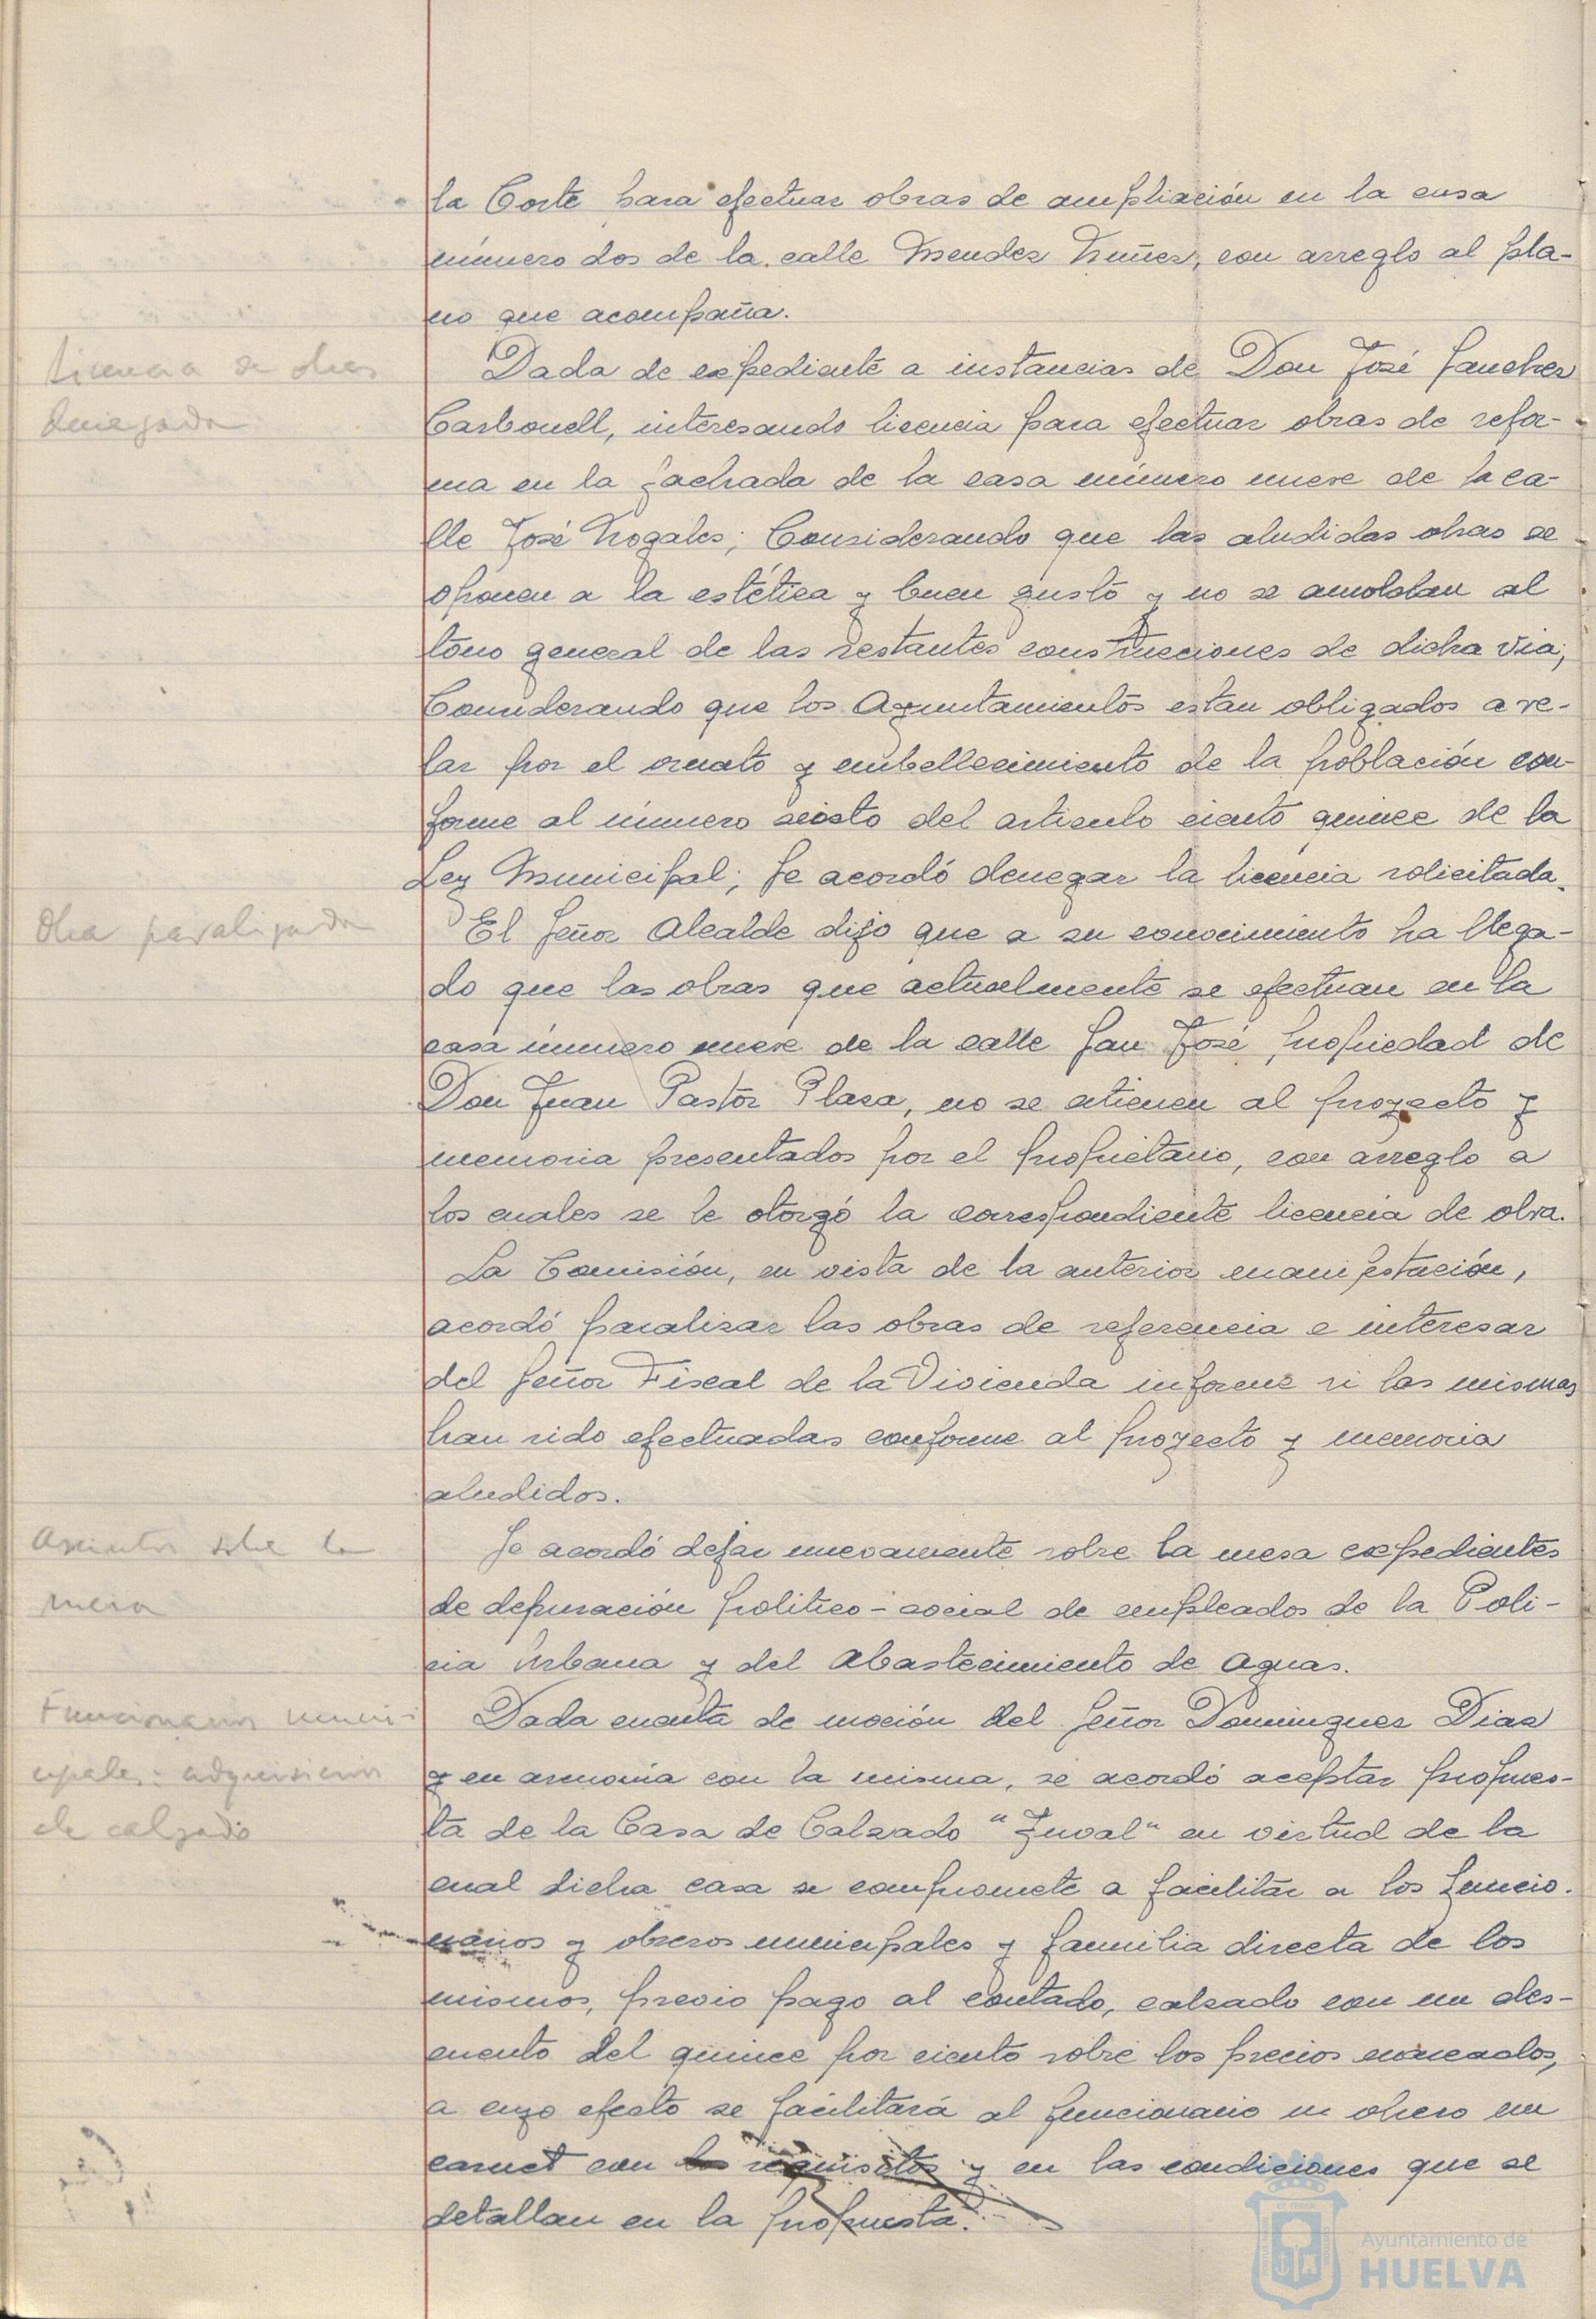 la Corte para efectuar obras de ampliación en la casa
número dos de la calle Mendez Nuñez, con arreglo al pla-
no que acompaña.
Licencia de obras
denegada
Dada de expediente a instancias de Don José Sanchez
Carbonell, interesando licencia para efectuar obras de refor-
ma en la fachada de la casa número nueve de la ca-
lle José Nogales; Considerando que las aludidas obras se
oponen a la estética y buen gusto y no se amoldan al
tono general de las restantes construcciones de dicha via;
Considerando que los Ayuntamientos estan obligados a ve-
lar por el ornato y embellecimiento de la población con-
forme al número sexto del articulo ciento quince de la
Ley Municipal; Se acordó denegar la licencia solicitada.
Obra paralizada
El Señor Alcalde dijo que a su conocimiento ha llega-
do que las obras que actualmente se efectuan en la
casa número nueve de la calle San José propiedad de
Don Juan Pastor Plaza, no se atienen al proyecto y
memoria presentados por el propietario, con arreglo a
los cuales se le otorgó la correspondiente licencia de obra.
La Comisión, en vista de la anterior manifestación,
acordó paralizar las obras de referencia e interesar
del Señor Fiscal de la Vivienda informe si las mismas
han sido efectuadas conforme al proyecto y memoria
aludidos.
Asuntos sobre la
mesa
Se acordó dejar nuevamente sobre la mesa expedientes
de depuración politico-social de empleados de la Poli-
cia Urbana y del Abastecimiento de Aguas.
Funcionarios muni-
cipales: adquisicion
de calzado
Dada cuenta de moción del Señor Dominguez Diaz
y en armonia con la misma, se acordó aceptar propues-
ta de la Casa de Calzado "Juval" en virtud de la
cual dicha casa se compromete a facilitar a los funcio-
narios y obreros municipales y familia directa de los
mismos, previo pago al contado, calzado con un des-
cuento del quince por ciento sobre los precios marcados,
a cuyo efecto se facilitará al funcionario u obrero un
carnet con los requisitos y en las condiciones que se
detallan en la propuesta.
Ayuntamiento de
HUELVA